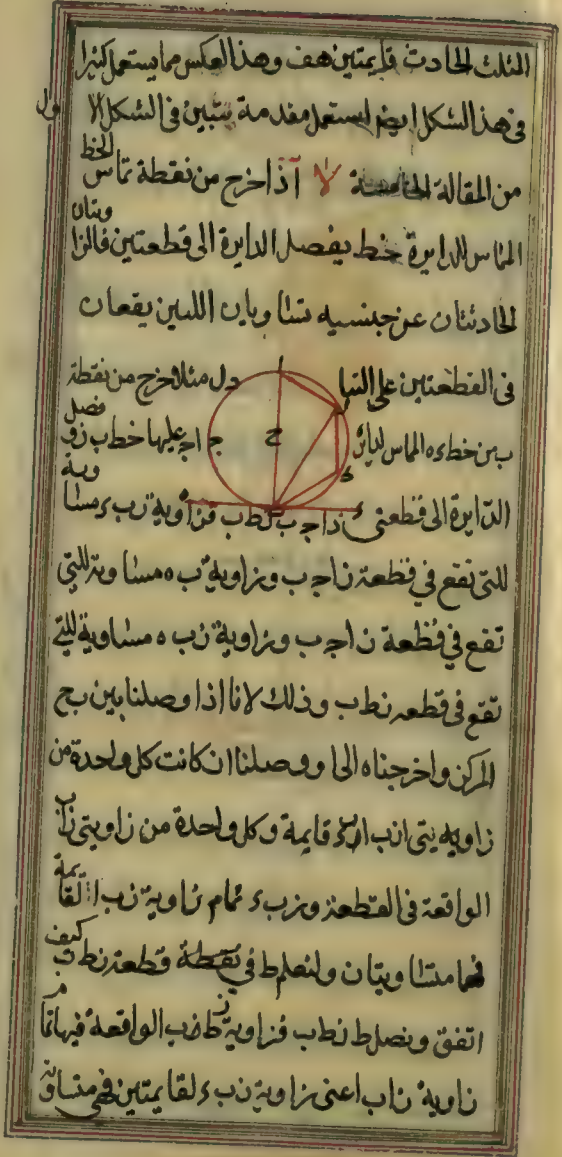 المثلث الحادث قايمتين هف وهذا العكس مما يستعمل كثيرا
فى هذا الشكل ايضا يستعمل مقدمة يتبين فى الشكل لا
من المقالة لا آ اذا خرج من نقطة تماس الخط
المماس للدايرة خط يفصل الدايرة الى قطعتين فالزا ويتان
الحادثتان عن جنبيه تساويان اللتين يقعان
فى القطعتين على التبا دل مثلا خرج من نقطة
ب من خط ه المماس لدايرة ا ج عليها خط ب ز و فصل
الدايرة الى قطعتى ز ا ج ب ز ط ب فزاوية ز ب ء مسا وية
للتى تقع فى قطعة ز ا ج ب وزاوية ز ب ه مساوية للتى
تقع فى قطعة ز ا ج ب وزاوية ز ب ه مساوية للتى
تقع فى قطعه ز ط ب وذلك لانا اذا وصلنا بين ب ح
المركز واخرجناه الى ا ووصلنا ا ز كانت كل واحدة من
زاويه يتى ا ز ب ا ب ء قايمة وكل واحدة من زاويتى ز ا ب
الواقعة فى القطعة و ز ب ء تمام زاوية ز ب ا القا يمة
فهما متساويتان ولنعلم ط فى نقطة قطعة ز ط ب كيف
اتفق ونصل ط ز ط ب فزاوية ز ط ب الواقعة فيها تما م
زاوية ز ا ب اعنى زاوية ز ب ء لقايمتين فهى متساو ية
ح
ا
ز
ط
ج
ب
ء
ه